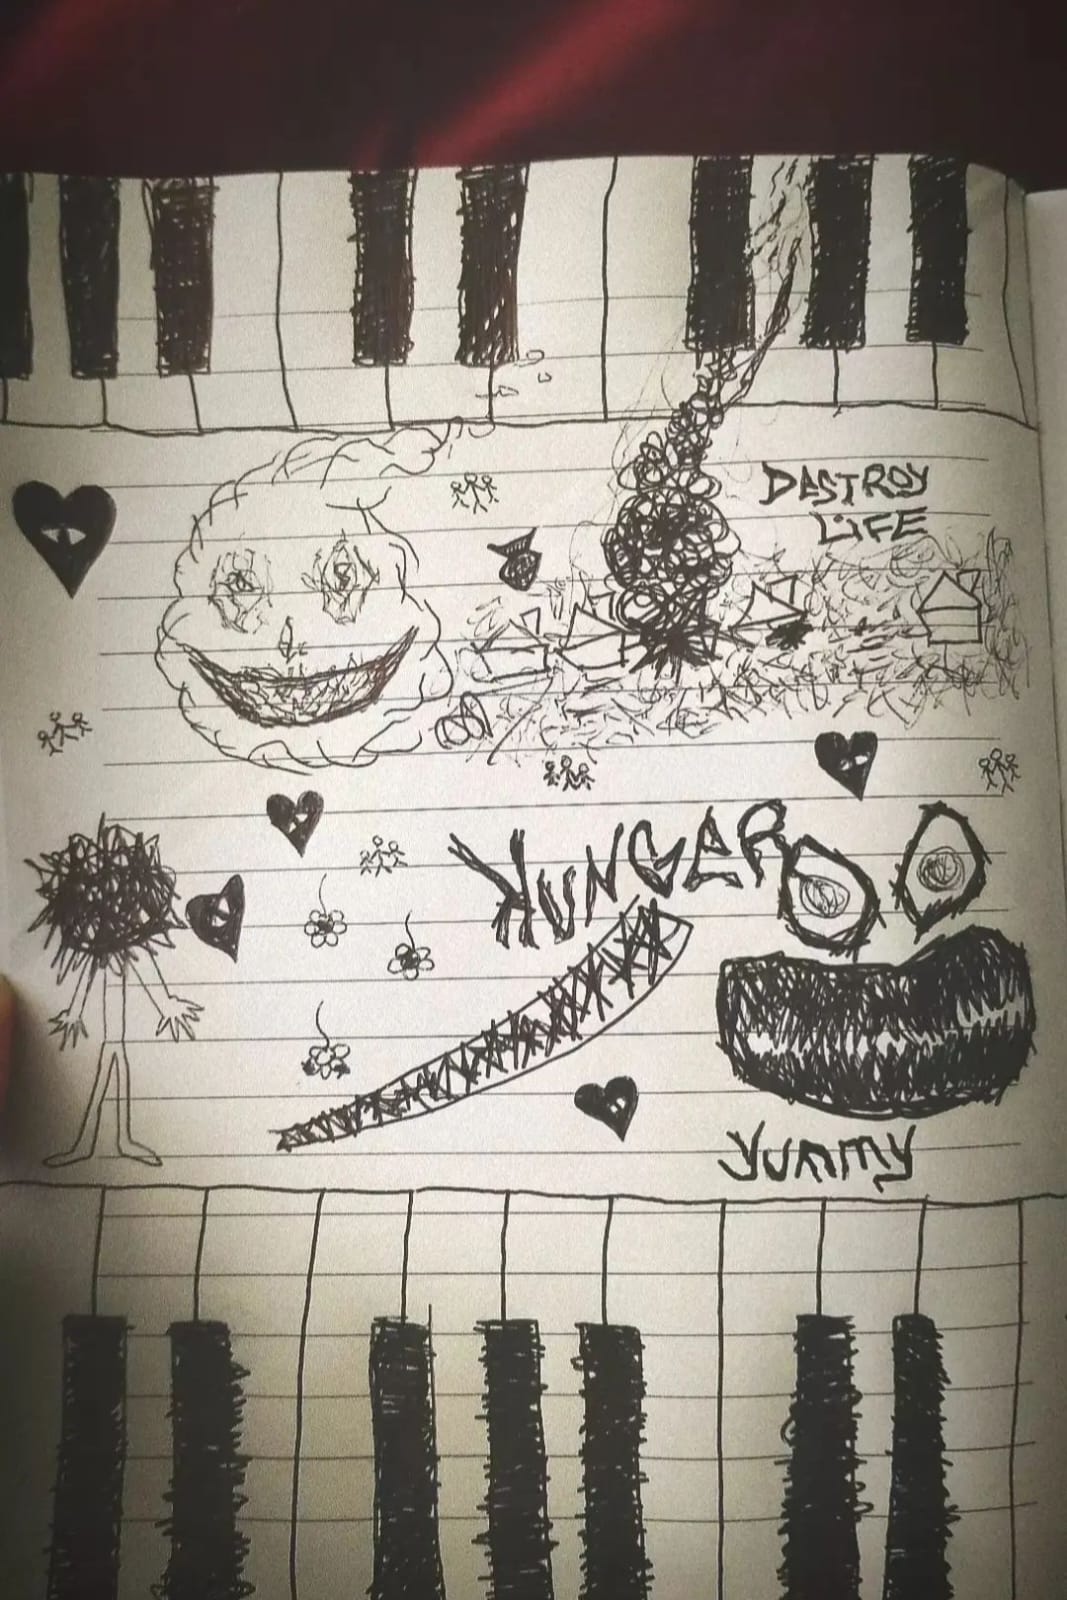 DASTROY
LIFE
HUNGER
YUMMY